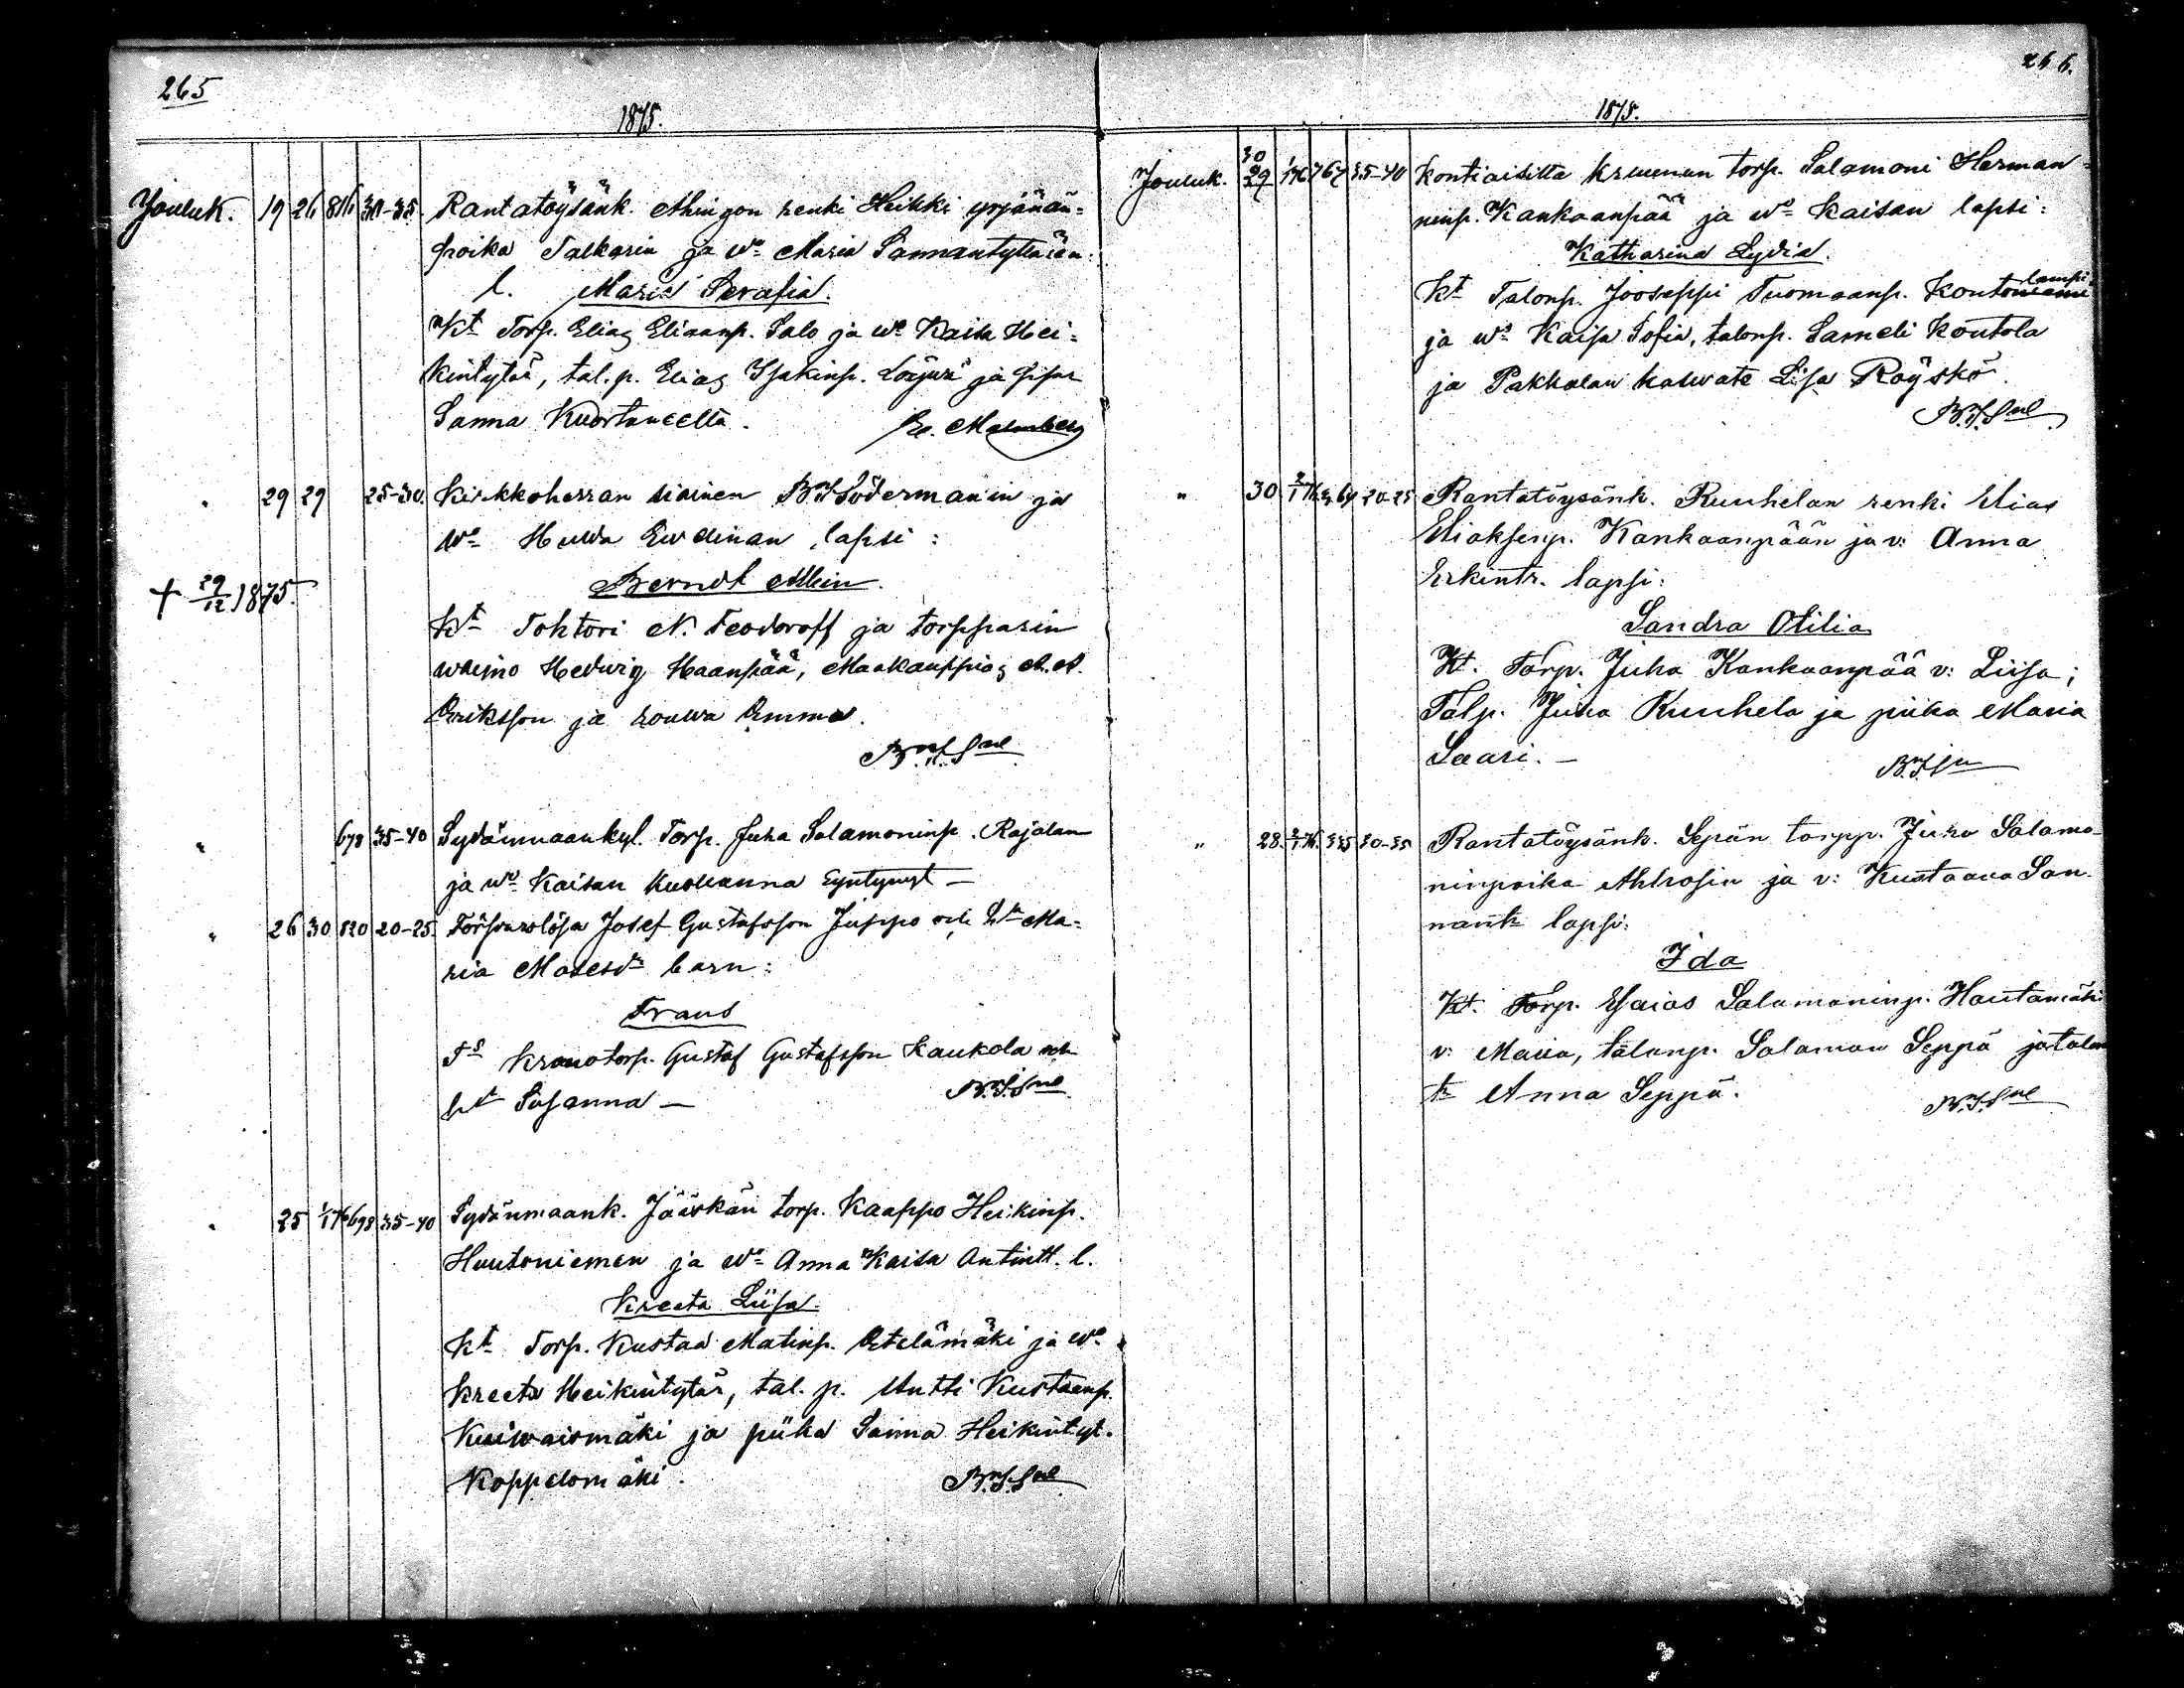 265
1875.
Jouluk. 19 26 816 30-35. Rantatöysänk. Ahingon renki Heikki yrjänän-
poika Talkarin ja Wo Maria Sannantyttären
l. Maria Serafia.
Kt Torp. Elias Eliaanp. Salo ja wo Kaisa Hei-
kintytär, tal.p. Elias Isakinp. Löijwä ja
Sanna Kuortaneelta. Malmberg
" 29 29 25-30. Kirkkoherran siainen Söderman'in ja
wo Hulda Ewelinan lapsi:
Berndt Allein.
+ 29/12 1875.
Kt Tohtori N. Teodoroff ja torpparin
waimo Hedwig Haanpää, Maakauppias A.A.
Eriksson ja rouwa Emma.
" 678 35-40 Sydänmaankyl. Torp. Juha Salamoninp. Rajalan
ja wo Kaisan kuolleanna syntynyt —
" 26 30 820 20-25. Försvarslösa Josef Gustafsson Juppo och hu Ma-
ria Mosesdr barn:
Frans
Fs Kronotorp. Gustaf Gustafsson Kaukola och
hu Susanna —
" 25 1/1 76 698 35-40 Sydänmaank. Jääskän torp. Kaappo Heikinp.
Huutoniemen ja wo Anna Kaisa Antintt. l.
Kreeta Liisa.
Kt Torp. Kustaa Matinp. Etelämäki ja wo
Kreeta Heikintytär, tal. p. Antti Kustaanp.
Kuiwaismäki ja piika Sanna Heikintyt.
Koppelomäki.
266.
1875.
Jouluk. 30 29 1/1 76 767 35-40 Kontiaisilta kruunun torp. Salamoni Herman-
ninp. Kankaanpää ja wo Kaisan lapsi:
Katharina Lydia.
Kt Talonp. Jooseppi Tuomaanp. Kontoniemi lampi
ja wo Kaisa Sofia, talonp. Sameli Kontola
ja Pakkalan kaswate Lisa Röyskö.
" 30 2/1 76 20-25 Rantatöysänk. Ruuhelan renki Elias
Eliaksenp. Kankaanpään ja v: Anna
Erkintr. lapsi:
Sandra Otilia
Kt. Torp. Juha Kankaanpää v: Liisa;
Talp. Juha Ruuhela ja piika Maria
Saari. —
" 28. 2/1 76. 30-35 Rantatöysänk. Sepän torpp. Juho Salamo-
ninpoika Ahlrosin ja v: Kustaava San-
nantr. lapsi:
Ida
Kt. Torp. Esaias Salamoninp. Hautamäki
v: Maria, talonp. Salamon Seppä ja talon
tr Anna Seppä.